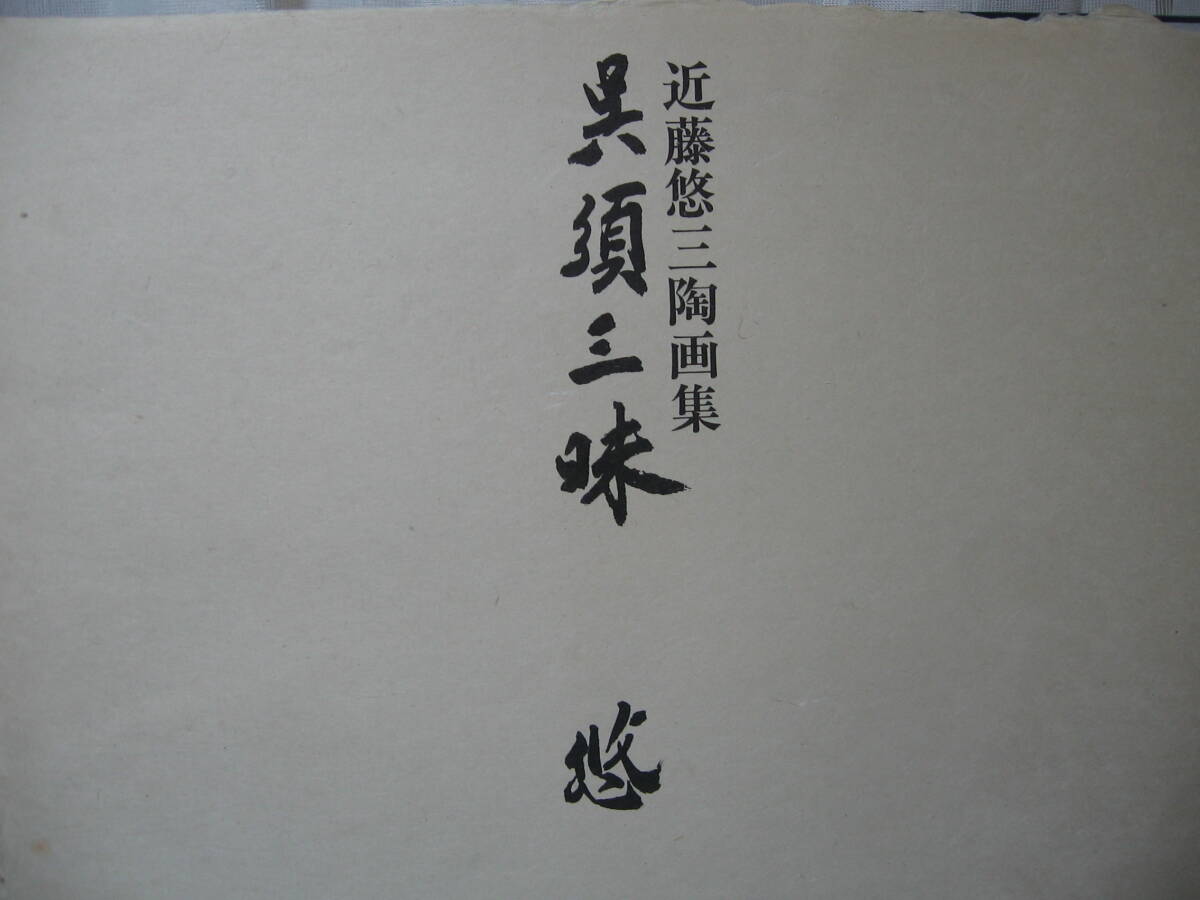 近藤悠三陶画集
呉須三昧
悠